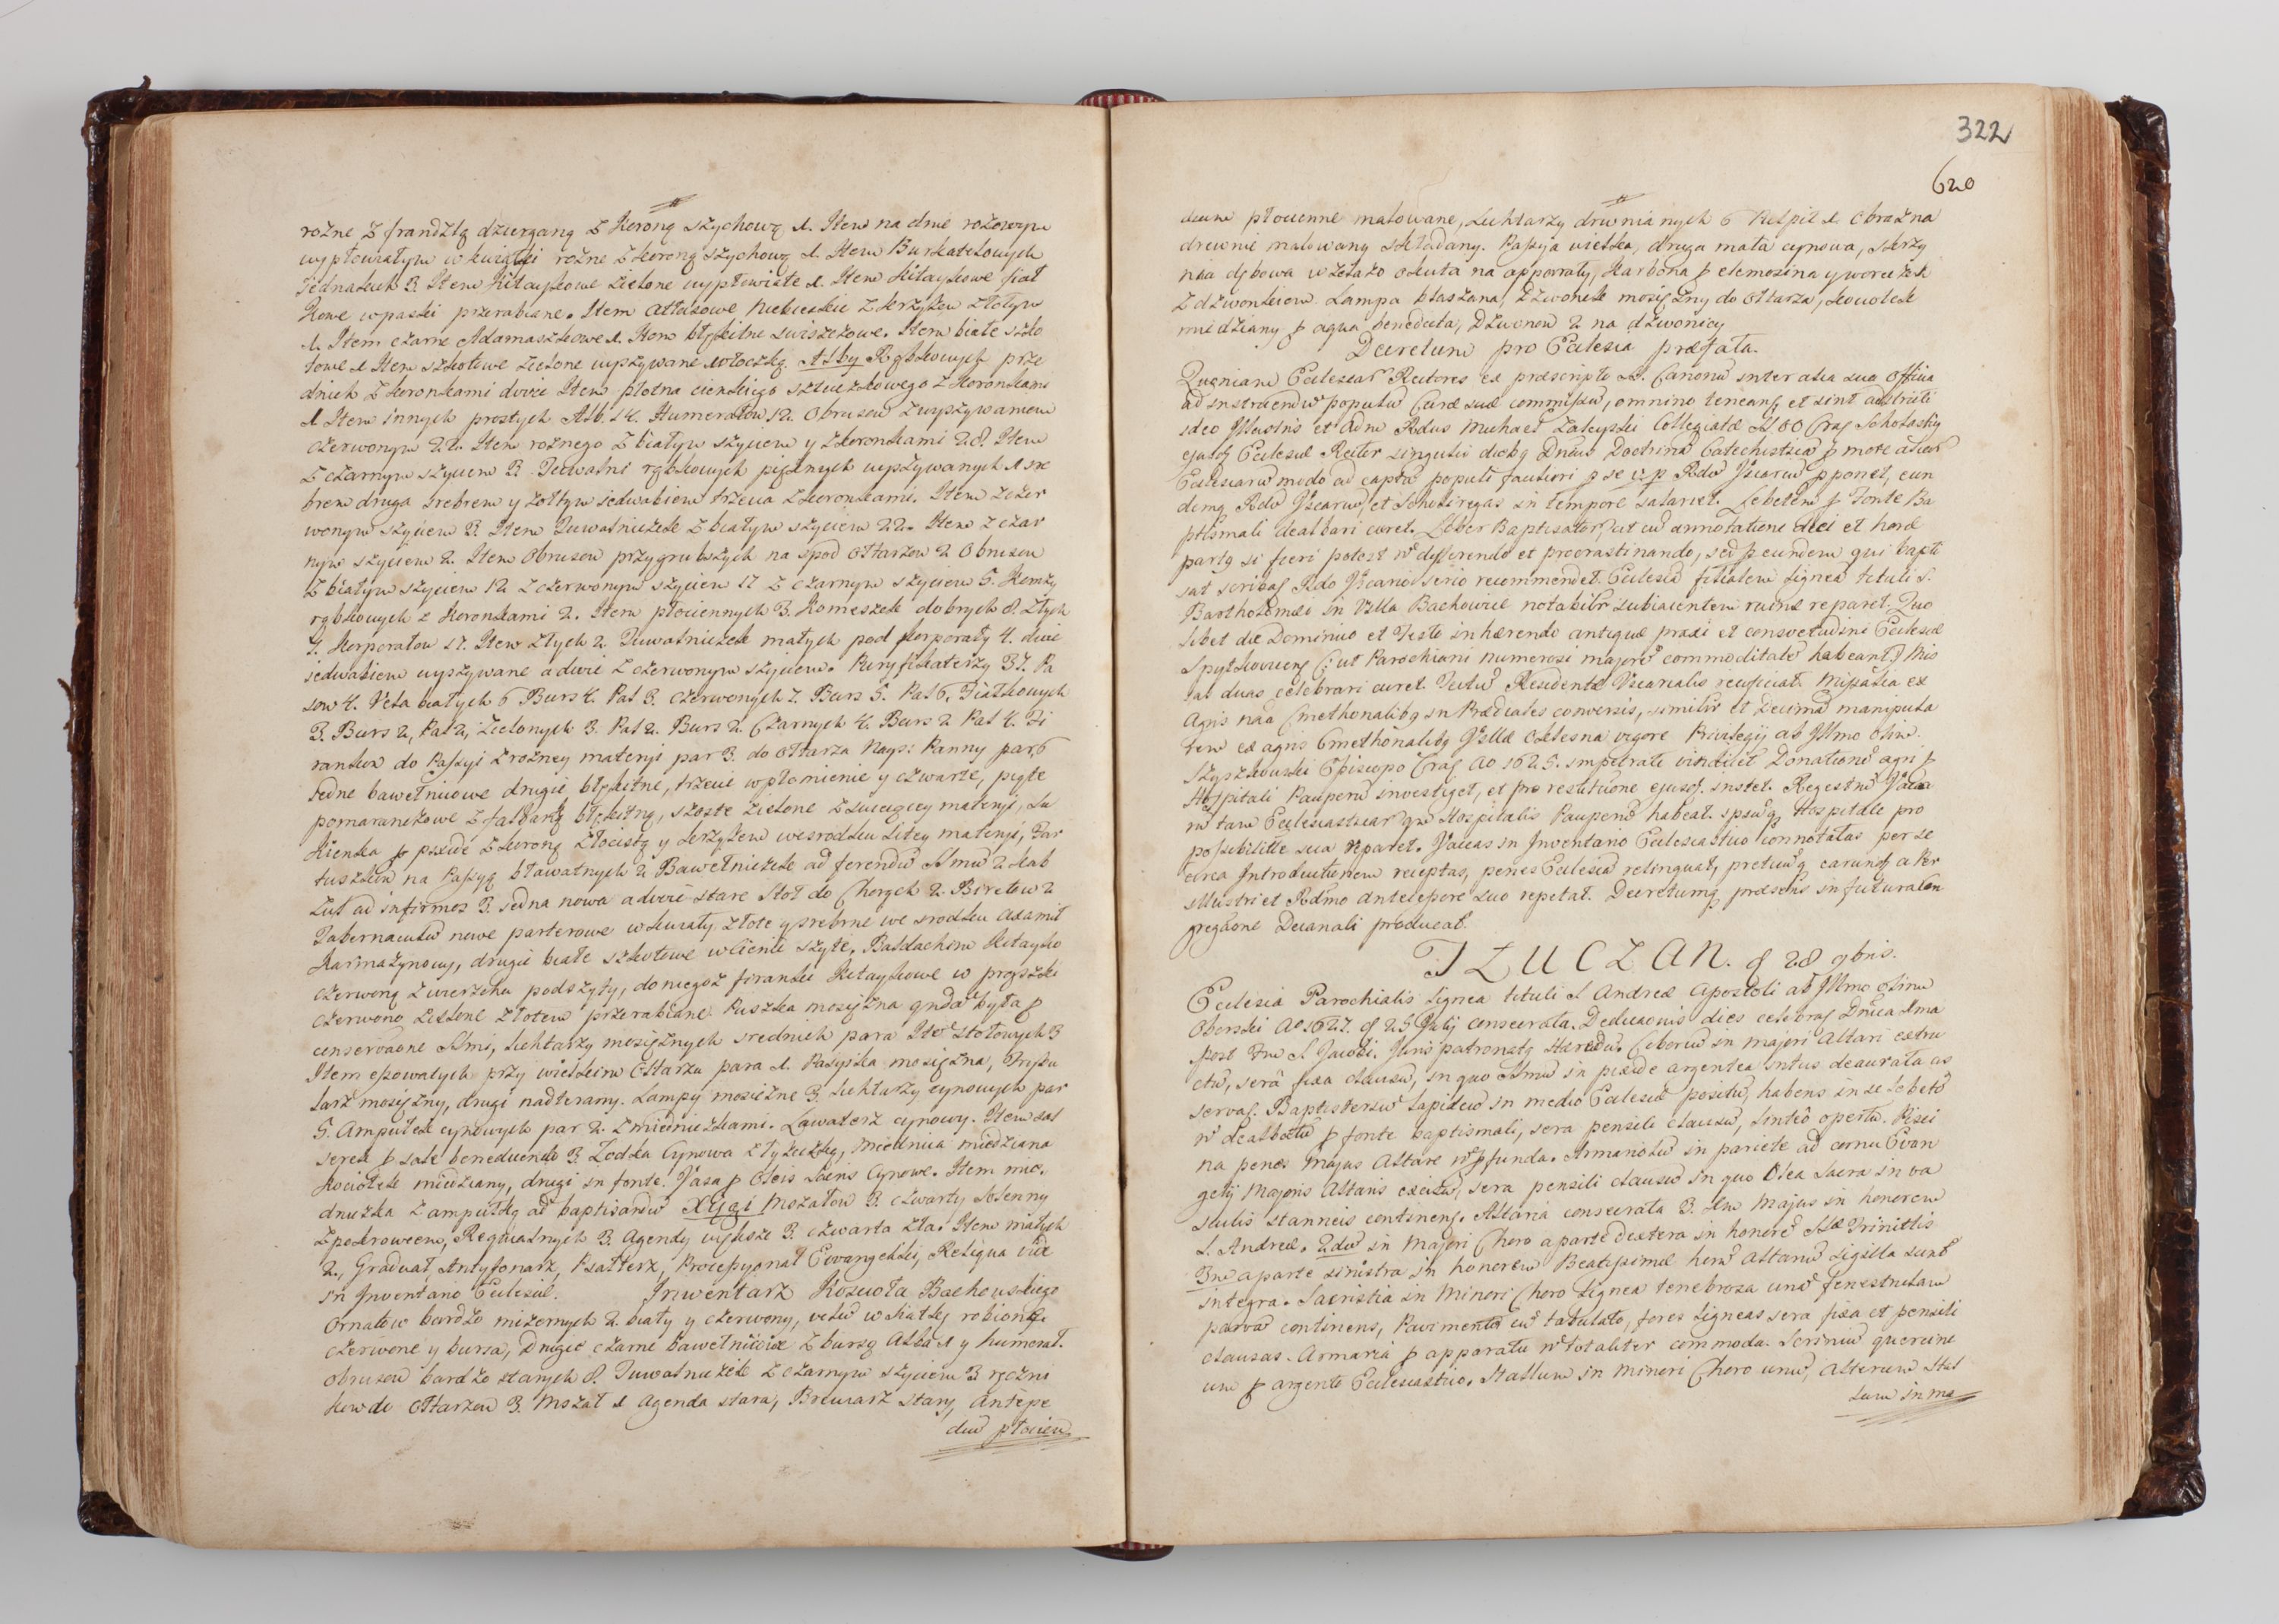 rożne z frandzlą dziergang z Koroną szychową 1. Item na dnie rożowym
wypłowiałym w kwiatki rożne z koroną szychową 1. Item Burkatelowych
jednakich 3. Item Kitaykowe zielone wypłowiałe 1. Item Kitaykowe fiał
kowe w paski przerabiane. Item Atłasowe Niebieskie z krzyżem złotym
1. Item czarne Adamaszkowe 1. Item błękitne Item białe szko
towe 1 Item szkotowe zielone wyszywane włoczką. Alby Rąbkowych prze
dnich z koronkami dwie Item płotna cienkiego sztuczkowego z Koronkami
1 Item innych prostych Alb. 14. Humerałow 12. Obrusow z wyszywaniem
czerwonym 22. Item rożnego z białym szyciem y z koronkami 28. Item
z czarnym szyciem 3. Tuwalni rąbkowych pięknych wyszywanych 1 sre
brem druga srebrem y żołtym jedwabiem trzecia z koronkami. Item z czer
wonym szyciem 3. Item Tuwalniczek z białym szyciem 22. Item z czar
nym szyciem 2. Item Obrusow przygrubszych na spod Ołtarzow 2 Obrusow
z białym szyciem 12 z czerwonym szyciem 17 z czarnym szyciem 5. Komży
rąbkowych z Koronkami 2. Item płociennych 3. Komeszek dobrych 8. Złych
4. Korporałow 17. Item złych 2. Tuwalniczek małych pod Korporały 4. dwie
jedwabiem wyszywane a dwie z czerwonym szyciem. Puryfikaterzy 37. Pa
sow 4. Vela białych 6 Burs 4. Pal 3. Czerwonych 7. Burs 5. Pal 6. Fiałkowych
3. Burs 2, Pal 2, Zielonych 3. Pal 2. Burs 2. Czarnych 4. Burs 2 Pal 4. Fi
ranków do Passyi z rożney materyi par 3. do Ołtarza Nays: Panny par 6
jedne bawełnicowe drugie błękitne, trzecie w płomienie y czwarte, piąte
pomaranczowe z falbaną błękitną, szoste zielone z swiecącey materyi, Su
kienka p pixide z koroną złocistą y krzyżem wesrodku litey materyi, Far
tuszkow na Passyą bławatnych 2 Bawełniczek ad ferendum SSmum 2 kab
zul ad infirmos 3. jedna nowa a dwie stare Stoł do Chorych 2. Biretow 2
Tabernaculum nowe parterowe w kwiaty złote y srebrne we srodku Axamit
karmazynowy, drugie białe szkotowe w Cienie szyte. Baldachim kitayko
czerwoną z wierzchu podszyty, do niegoż firanki kitaykowe w prążki
czerwono zielone złotem przerabiane. Puszka mosiężna qnda była p
conservaone SSmi, lichtarzy mosiężnych srednich para Ite stołowych 3
Item epowatych przy wielkim Ołtarzu para 1. Pasyjka mosiężna, Trybu
larz mosiężny, drugi nadłamany. Lampy mosiężne 3. Lichtarzy cynowych par
5. Ampułek cynowych par 2. z miedniczkami. Lawaterz cynowy. Item sal
serek p sale benedicendo 3. Łodka Cynowa z łyżeczką, miednica miedziana
kociołek miedziany, drugi in fonte. Vasa p Oleis Sacris Cynowe. Item mie
dniczka z ampułką ad baptisandum Xięgi Mszałow 3. czwarty Solenny
z pokrowcem, Requialnych 3. Agendy większe 3. czwarta zła. Item małych
2., Graduał, Antyfonarz, Psałterz, Processyonał y Ewangeliki, Reliqua vide
in Inventario Ecclesiæ. Inwentarz Koscioła Bachowskiego
Ornatow bardzo mizernych 2. biały y czerwony, velum w siatkę robione
czerwone y bursa, Drugie czarne bawełnicie z bursą Alba 1 y humerał.
Obrusow bardzo starych 8. Tuwalniczek z czarnym szyciem 3 ręczni
kow do Ołtarzow 3. Mszał 1 Agenda stara, Brewiarz stary, Antepe
dium płocien
322
620
dium płocienne malowane, Lichtarzy drewnianych 6 Pulpit 1. Obraz na
drewnie malowany składany. Passyja wielka, druga mała cynowa, skrzy
nka dębowa w żelazo okuta na apparaty, Karbona p elemozina y woreczek
z dzwonkiem. Lampa blaszana, Dzwonek mosiężny do Ołtarza, kociołek
miedziany p aqua benedicta, Dzwonow 2 na dzwonicy
Decretum pro Ecclesia præfata.
Quoniam Ecclesiar Rectores ex præscripto SS. Canonum inter alia sua Officia
ad instruendum populum Curæ suæ commissum, omnino teneant et sint adstricti
ideo Illustris et Adm Rdus Michael Załuski Collegiatæ SS OO Crac Scholasticus
ejusdq Ecclesiæ Rector singulis diebq Dnicis Doctrinam Catechisticam p more aliar
Ecclesiarum modo ad captum populi faciliori p se v. p Rdum Vicarium pponet, eun
demq Rdum Vicarium, et Scholiregas in tempore salariet. Lebetem p Fonte Ba
ptismali dealbari curet. Liber Baptisator, ut cum annotatione diei et horæ
partq si fieri potest non differendo et procrastinando, sed p eundem qui bapti
sat scribat Rdo Vicario serio recommendet. Ecclesiam filialem ligneam tituli S.
Bartholomæi in Villa Bachowice notabiliter subiacentem ruinæ reparet. Quo
libet die Dominico et Festo inhærendo antiquæ praxi et consvetudini Ecclesiæ
Spytkoviens (: ut Parochiani numerosi majorem commoditatem habeant:) Mis
sas duas celebrari curet. Tectum Residentiæ Vicarialis reficiat. Missalia ex
Agris naa Cmethonalibq in Prædiales conversis, similiter et Decimam manipula
rem ex agris Cmethonalibq Villæ vigore Privilegij ab Illmo olim
Szyszkowski Episcopo Crac Ao 1625. impetrati vindicet Donationem agri p
Hospitali Pauperum investiget, et pro restitutione ejusd. instet. Regestrum
tam Ecclesiasticar qm Hospitalis Pauperum habeat. ipsumq Hospitale pro
possibilitte sua reparet. Vaccas in Inventario Ecclesiastico connotatas per se
circa Introductionem receptas, penes Ecclesiam relinquat, pretiumq earund a Per
illustri et Rdmo Antecessore suo repetat. Decretumq præsens in futura Con
gregaone Decanali producat.
TŁUCZAN. d 28 9bris.
Ecclesia Parochialis lignea tituli S Andreæ Apostoli ab Illmo olim
Oborski Ao 1627. d 25 Julij consecrata. Dedicaonis dies celebrat Dnica Ima
post Fm S Jacobi. Juris patronatq Hæredum. Ciborium in majori Altari extru
ctum, sera fixa clausum, in quo SSmum in pixide argentea intus deaurata as
servat. Baptisterium lapideum in medio Ecclesiæ positum, habens in se lebetem
n dealbatum p fonte baptismali, sera pensili clausum, linteo opertum. Pisci
na penes majus Altare n pfunda. Armariolum in pariete ad cornu Evan
gelij Majoris Altaris excisum, sera pensili clausum in quo Olea Sacra in va
sculis stanneis continent. Altaria consecrata 3. Im Majus in honorem
S. Andreæ. 2dum in Majori Choro a parte dextera in honorem SSæ Trinittis
3m a parte sinistra in honorem Beatissimæ horum altarium sigilla sunt
integra. Sacristia in Minori Choro lignea tenebrosa unam fenestrulam
parvam continens, Pavimento cum tabulato, fores ligneas sera fixa et pensili
clausas. Armaria p apparatu n totaliter commoda. Scrinium querceine
um p argento Ecclesiastico. Stallum in Minori Choro unum, Alterum Stal
lum in ma